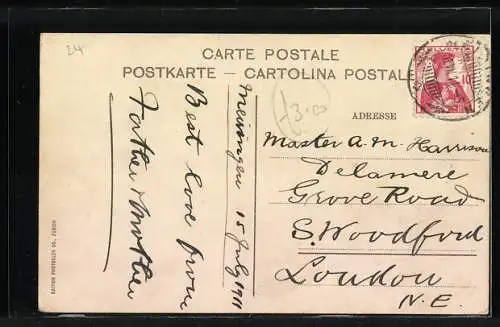 24
CARTE POSTALE
POSTKARTE – CARTOLINA POSTALE
HELVETIA
10
13.–
ADRESSE
Meiringen 15 July 1911
Best love from
Father & Mother
Master A. M. Harrison
Delamere
Grove Road
S. Woodford
London
N.E.
EDITION PHOTOGLOB CO., ZÜRICH